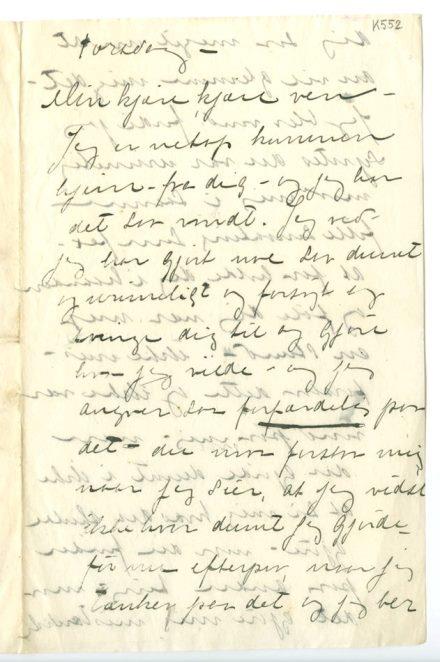 K552
Torsdag –
Min kjære, kjære ven –
Jeg er netop kommen
hjem – fra dig – og jeg har
det saa ondt. Jeg ved
jeg har gjort noe saa dumt
og umueligt og forsøgt og
tvinge dig til og gjøre
hva jeg vilde – og jeg
angrer saa forfærdelig paa
det – du maa forstaa mig
naar jeg sier, at jeg vidste
ikke hvor dumt jeg gjorde –
før nu efterpaa, naar jeg
tænker paa det og jeg ber